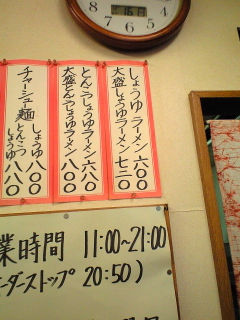 しょうゆラーメン 六〇〇
大盛しょうゆラーメン 七三〇
とんこつしょうゆラーメン 六八〇
大盛とんこつしょうゆラーメン 八〇〇
チャーシュー麺
しょうゆ 八〇〇
とんこつしょうゆ 八八〇
業時間 11:00~21:00
ーダーストップ 20:50)
8 7 6 5 4